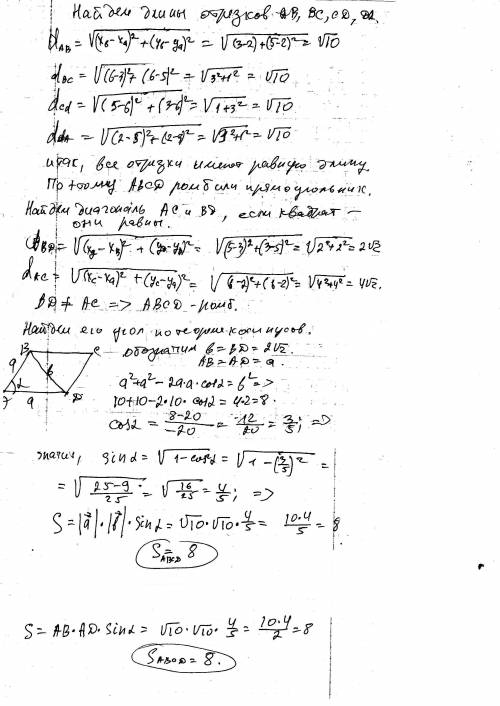 Найдем длины отрезков AB, BC, CD, DA.
d_AB = √((x_B-x_A)²+(y_B-y_A)²) = √((3-2)+(5-2)²) = √10
d_BC = √((6-3)²+(6-5)²) = √(3²+1²) = √10
d_Cd = √((5-6)²+(3-6)²) = √(1+3²) = √10
d_dA = √((2-5)²+(2-3)²) = √(3²+1²) = √10
итак, все отрезки имеют равную длину.
Поэтому ABCD ромб или прямоугольник.
Найдем диагональ AC и BD, если квадрат -
они равны.
d_BD = √((x_D-x_B)²+(y_D-y_B)²) = √((5-3)²+(3-5)²) = √(2²+2²) = 2√2
d_AC = √((x_C-x_A)²+(y_C-y_A)²) = √((6-2)²+(6-2)²) = √(4²+4²) = 4√2.
BD ≠ AC => ABCD - ромб.
Найдем его угол по теореме косинусов.
B C
a b
α
a D
обозначим b = BD = 2√2.
AB = AD = a.
a²+a²-2a·a·cosα = b² =>
10+10-2·10·cosα = 4·2 = 8.
cosα = (8-20)/(-20) = (-12)/20 = 3/5; =>
значит, sinα = √(1-cos²α) = √(1-(3/5)²) =
= √((25-9)/25) = √(16/25) = 4/5; =>
S = |a|·|b|·sinα = √10·√10·4/5 = (10·4)/5 = 8
S_ABCD = 8
S = AB·AD·sinα = √10·√10·4/5 = (10·4)/2 = 8
S_ABCD = 8.